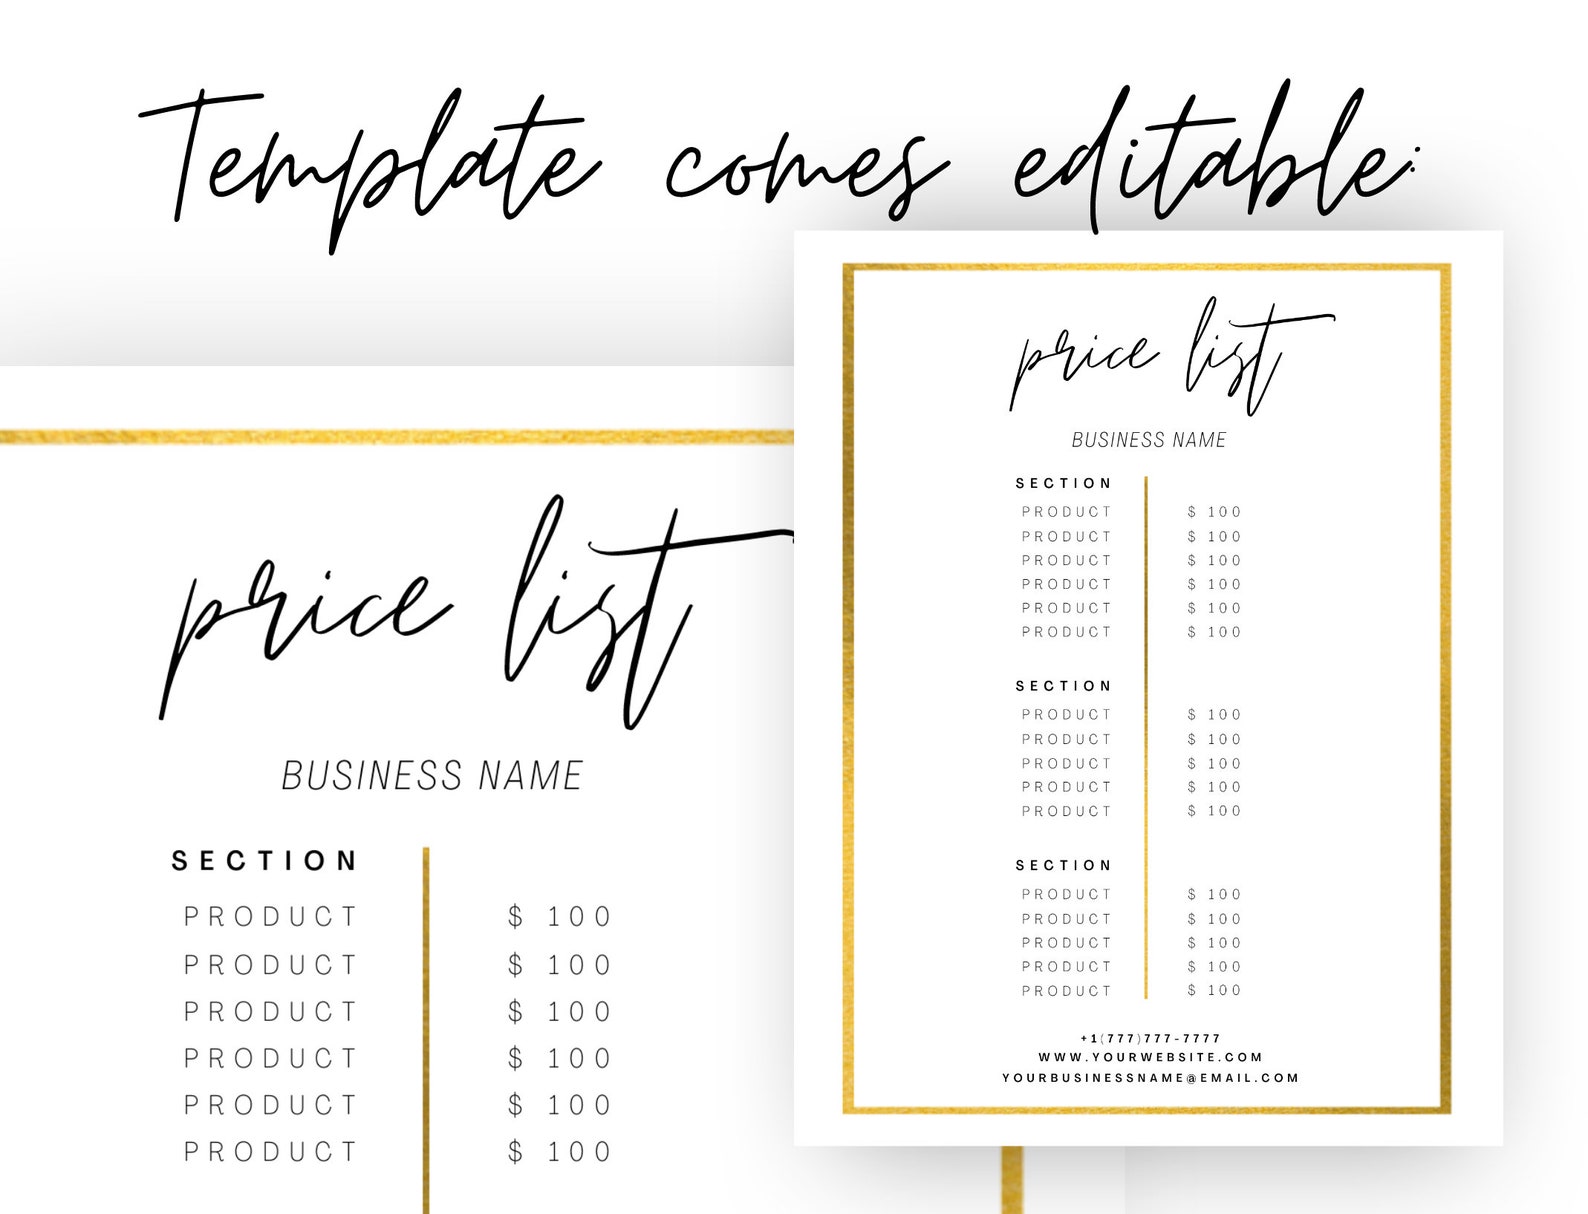 Template comes editable:
price list
BUSINESS NAME
SECTION
PRODUCT $ 100
PRODUCT $ 100
PRODUCT $ 100
PRODUCT $ 100
PRODUCT $ 100
PRODUCT $ 100
price list
BUSINESS NAME
SECTION
PRODUCT $ 100
PRODUCT $ 100
PRODUCT $ 100
PRODUCT $ 100
PRODUCT $ 100
PRODUCT $ 100
SECTION
PRODUCT $ 100
PRODUCT $ 100
PRODUCT $ 100
PRODUCT $ 100
PRODUCT $ 100
SECTION
PRODUCT $ 100
PRODUCT $ 100
PRODUCT $ 100
PRODUCT $ 100
PRODUCT $ 100
+1(777)777-7777
WWW.YOURWEBSITE.COM
YOURBUSINESSNAME@EMAIL.COM